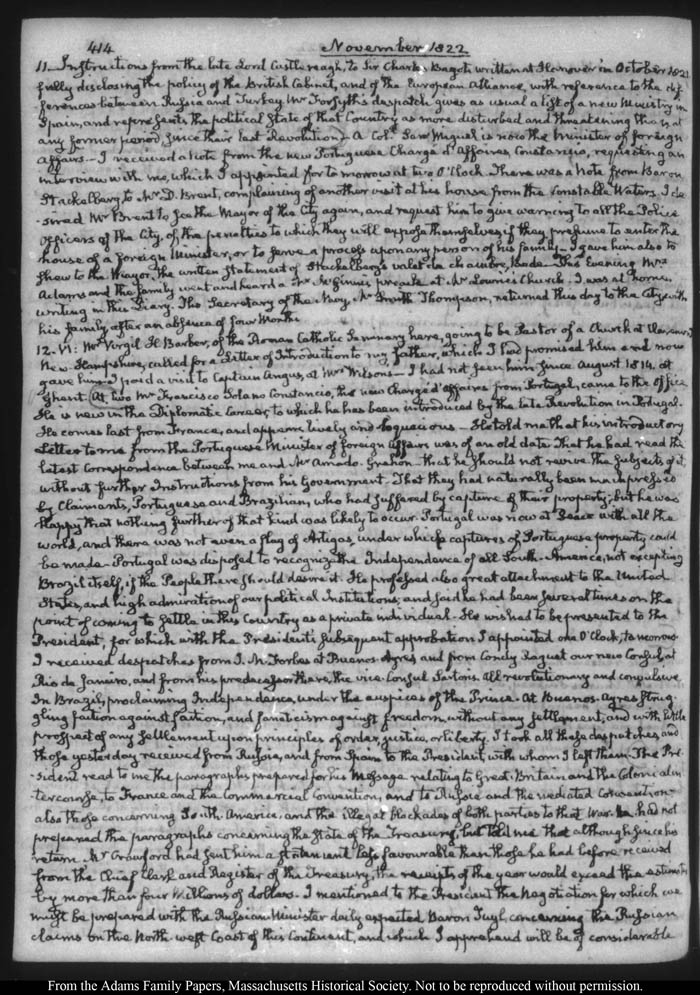 414 November 1822
11. Instructions from the late Lord Castlereagh, to Sir Charles Bagot written at Hanover in October 1821
fully disclosing the policy of the British Cabinet, and of the European Alliance, with reference to the dif-
ferences between Russia and Turkey. Mr Forsyth's despatch gives as usual a list of a new Ministry in
Spain, and represents the political State of that Country as more disturbed and threatening than at
any former period since their last Revolution. A Coll. San Miguel is now the Minister of foreign
Affairs.— I received a Note from the new Portuguese Chargé d'Affaires, Constancio, requesting an
interview with me, which I appointed for to-morrow at two O'Clock. There was a Note from Baron
Stackelberg to Mr D. Brent, complaining of another visit at his house from the Constable Waters. I de-
-sired Mr Brent to see the Mayor of the City again, and request him to give warning to all the Police
Officers of the City, of the penalties to which they will expose themselves, if they presume to enter the
house of a foreign Minister, or to serve a process upon any person of his family. I gave him also to
shew to the Mayor, the written Statement of Stackelberg's valet de chambre, Bade. This Evening Mrs
Adams and the family went and heard a Mr McGinnis preach at Mr Lowrie's Church. I was at home
writing in this Diary. The Secretary of the Navy, Mr Smith Thompson, returned this day to the City with
his family after an absence of four Months.
12. VI: Mr Virgil H. Barber, of the Roman Catholic Seminary here, going to be Pastor of a Church at Claremont
New Hampshire, called for a Letter of Introduction to my father, which I had promised him and now
gave him. I paid a visit to Captain Angus, at Mrs Wilson's— I had not seen him since August 1814. at
Ghent. At two Mr Francisco Solano Constancio, the new Chargé d'affaires from Portugal, came to the Office
He is new in the Diplomatic Career, to which he has been introduced by the late Revolution in Portugal.
He comes last from France, and appears lively and loquacious— He told me that his introductory
Letter to me from the Portuguese Minister of foreign Affairs was of an old date. That he had read the
latest correspondence between me and Mr Amado. Grehon— that he should not revive the subjects of it,
without further Instructions from his Government. That they had naturally been much pressed
by Claimants, Portuguese and Brazilian, who had suffered by capture of their property; but he was
happy that nothing further of that kind was likely to occur. Portugal was now at Peace with all the
world, and there was not even a flag of Artigas, under which captures of Portuguese property could
be made. Portugal was disposed to recognize the Independence of all South-America, not excepting
Brazil itself, if the People there should desire it. He professed also great attachment to the United
States, and high admiration of our political Institutions, and said he had been several times on the
point of coming to settle in this Country as a private individual. He wished to be presented to the
President, for which with the President's subsequent approbation I appointed one O'Clock, to-morrow.
I received despatches from J. M. Forbes at Buenos-Ayres and from Condy Raguet our new Consul at
Rio de Janeiro, and from his predecessor there, the vice Consul Sartoris. All revolutionary and convulsive
In Brazil, proclaiming Independence, under the auspices of the Prince. At Buenos-Ayres strug-
gling faction against faction, and fanaticism against freedom, without any settlement, and with little
prospect of any settlement upon principles of order, justice, or liberty. I took all these despatches, and
those yesterday received from Russia, and from Spain to the President, with whom I left them. The Pre-
-sident read to me the paragraphs prepared for his Message relating to Great-Britain and the Colonial in-
tercourse, to France and the commercial Convention, and to Russia and the mediated Convention—
also those concerning South-America, and the illegal blockades of both parties to that War. He had not
prepared the paragraphs concerning the State of the Treasury, but told me that although since his
return Mr Crawford had sent him a statement less favourable than those he had before received
from the Chief Clerk and Register of the Treasury, the receipts of the year would exceed the estimate
by more than four Millions of dollars. I mentioned to the President the Negotiation for which we
must be prepared with the Russian Minister daily expected Baron Tuyl, concerning the Russian
claims on the North-west Coast of this Continent, and which I apprehend will be of considerable
From the Adams Family Papers, Massachusetts Historical Society. Not to be reproduced without permission.